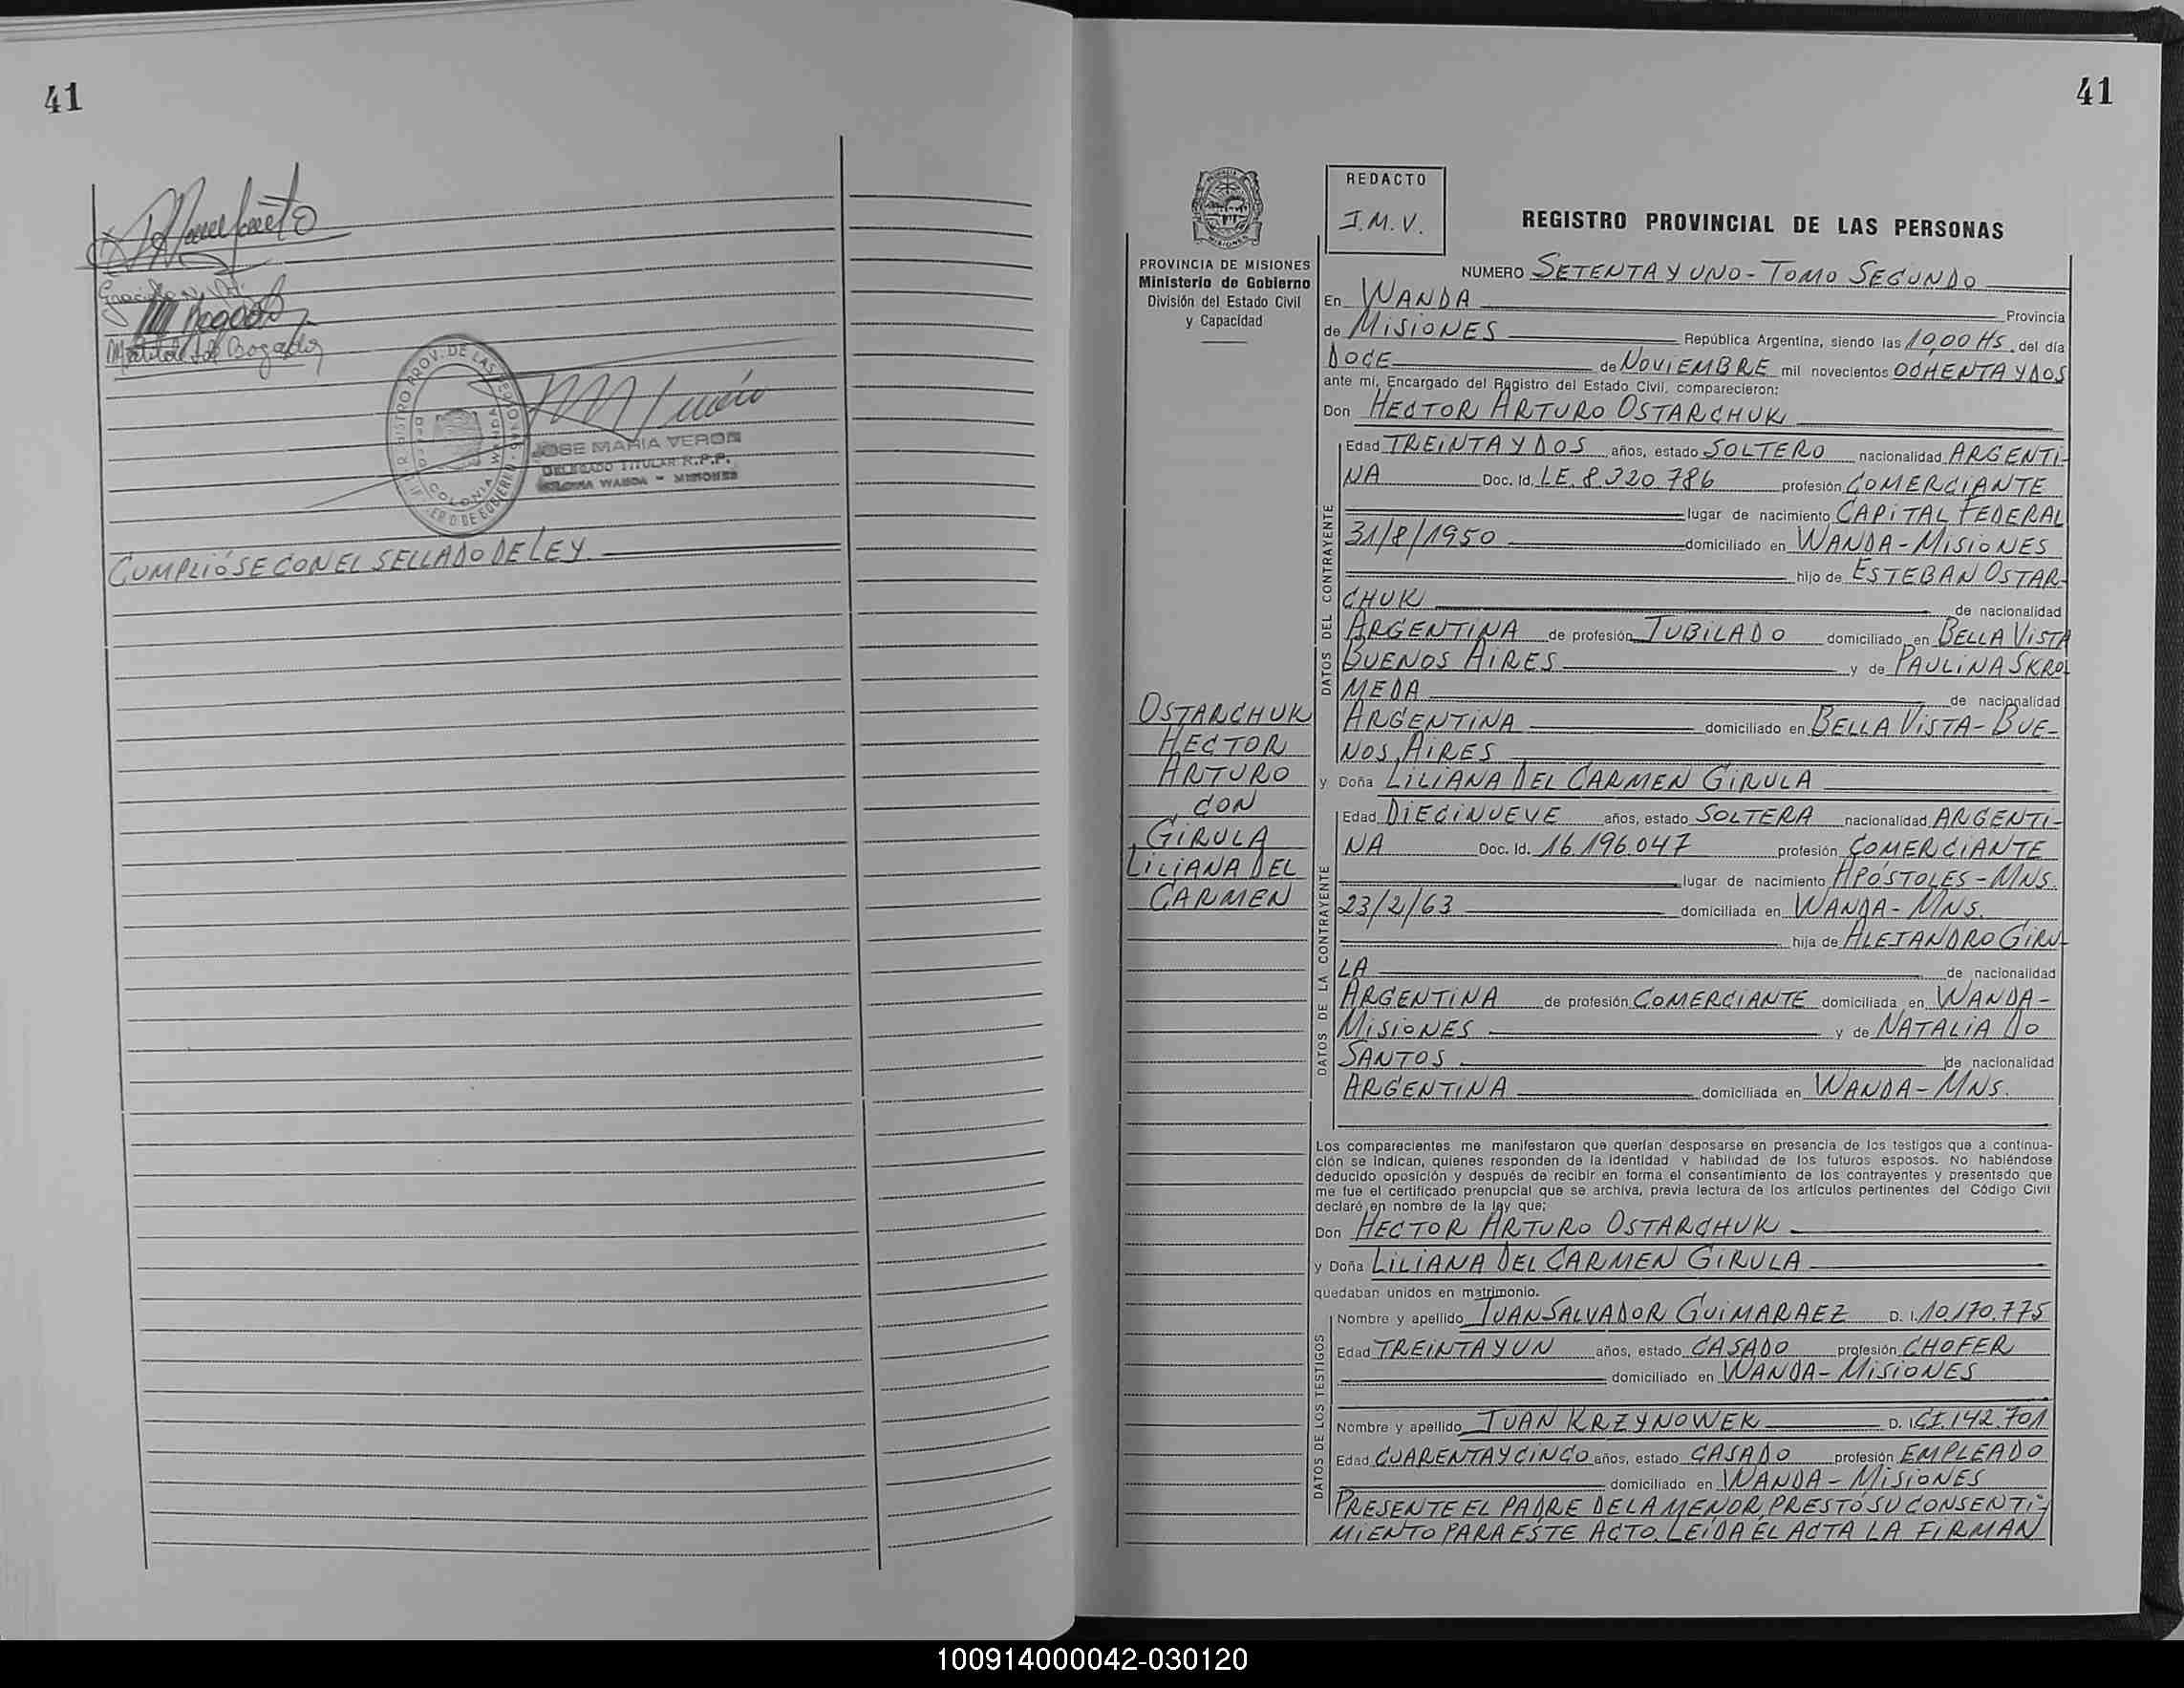 41
CUMPLIÓSE CON EL SELLADO DE LEY.
JOSE MARIA VERON
DELEGADO TITULAR R.P.P.
COLONIA WANDA - MISIONES
41
REDACTO
I.M.V.
PROVINCIA DE MISIONES
Ministerio de Gobierno
División del Estado Civil
y Capacidad
REGISTRO PROVINCIAL DE LAS PERSONAS
NUMERO SETENTA Y UNO - TOMO SEGUNDO
En WANDA Provincia
de MISIONES República Argentina, siendo las 10,00 HS. del día
DOCE de NOVIEMBRE mil novecientos OCHENTA Y DOS
ante mí, Encargado del Registro del Estado Civil, comparecieron:
Don HECTOR ARTURO OSTARCHUK
DATOS DEL CONTRAYENTE
Edad TREINTA Y DOS años, estado SOLTERO nacionalidad ARGENTI-
NA Doc. Id. LE. 8.320.786 profesión COMERCIANTE
lugar de nacimiento CAPITAL FEDERAL
31/8/1950 domiciliado en WANDA - MISIONES
hijo de ESTEBAN OSTAR-
CHUK de nacionalidad
ARGENTINA de profesión JUBILADO domiciliado en BELLA VISTA
BUENOS AIRES y de PAULINA SKRO-
MEDA de nacionalidad
ARGENTINA domiciliado en BELLA VISTA - BUE-
NOS AIRES
OSTARCHUK
HECTOR
ARTURO
CON
GIRULA
LILIANA DEL
CARMEN
y Doña LILIANA DEL CARMEN GIRULA
DATOS DE LA CONTRAYENTE
Edad DIECINUEVE años, estado SOLTERA nacionalidad ARGENTI-
NA Doc. Id. 16.196.047 profesión COMERCIANTE
lugar de nacimiento APÓSTOLES - MNS.
23/2/63 domiciliada en WANDA - MNS.
hija de ALEJANDRO GIRU-
LA de nacionalidad
ARGENTINA de profesión COMERCIANTE domiciliada en WANDA -
MISIONES y de NATALIA DO
SANTOS de nacionalidad
ARGENTINA domiciliada en WANDA - MNS.
Los comparecientes me manifestaron que querían desposarse en presencia de los testigos que a continua-
ción se indican, quienes responden de la identidad y habilidad de los futuros esposos. No habiéndose
deducido oposición y después de recibir en forma el consentimiento de los contrayentes y presentado que
me fue el certificado prenupcial que se archiva, previa lectura de los artículos pertinentes del Código Civil
declaré en nombre de la ley que;
Don HECTOR ARTURO OSTARCHUK
y Doña LILIANA DEL CARMEN GIRULA
quedaban unidos en matrimonio.
DATOS DE LOS TESTIGOS
Nombre y apellido JUAN SALVADOR GUIMARAEZ D. I. 10.170.775
Edad TREINTA Y UN años, estado CASADO profesión CHOFER
domiciliado en WANDA - MISIONES
Nombre y apellido JUAN KRZYNOWEK D. I. CI. 142.701
Edad CUARENTA Y CINCO años, estado CASADO profesión EMPLEADO
domiciliado en WANDA - MISIONES
PRESENTE EL PADRE DE LA MENOR, PRESTÓ SU CONSENTI-
MIENTO PARA ESTE ACTO. LEIDA EL ACTA LA FIRMAN
100914000042-030120